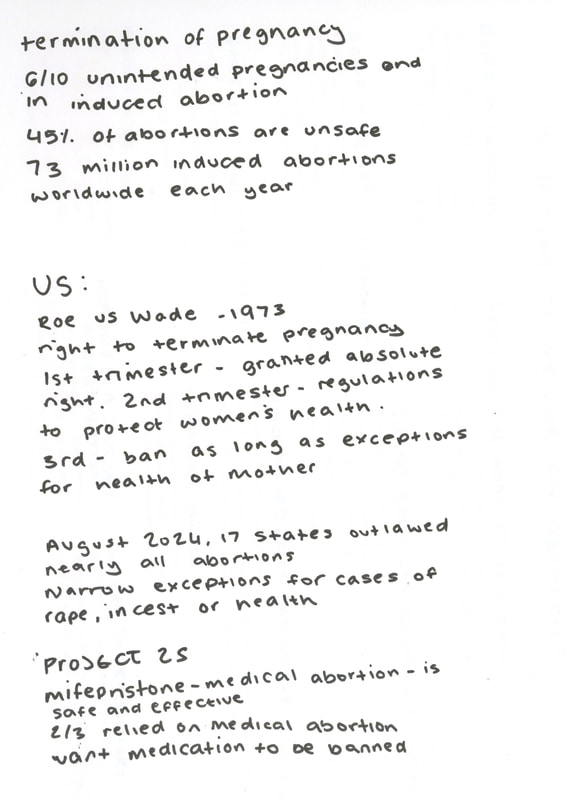 termination of pregnancy
6/10 unintended pregnancies end
in induced abortion
45% of abortions are unsafe
73 million induced abortions
worldwide each year
US:
Roe vs Wade - 1973
right to terminate pregnancy
1st trimester - granted absolute
right. 2nd trimester - regulations
to protect women's health.
3rd - ban as long as exceptions
for health of mother
August 2024, 17 states outlawed
nearly all abortions
Narrow exceptions for cases of
rape, incest or health
Project 25
mifepristone - medical abortion - is
safe and effective
2/3 relied on medical abortion
want medication to be banned